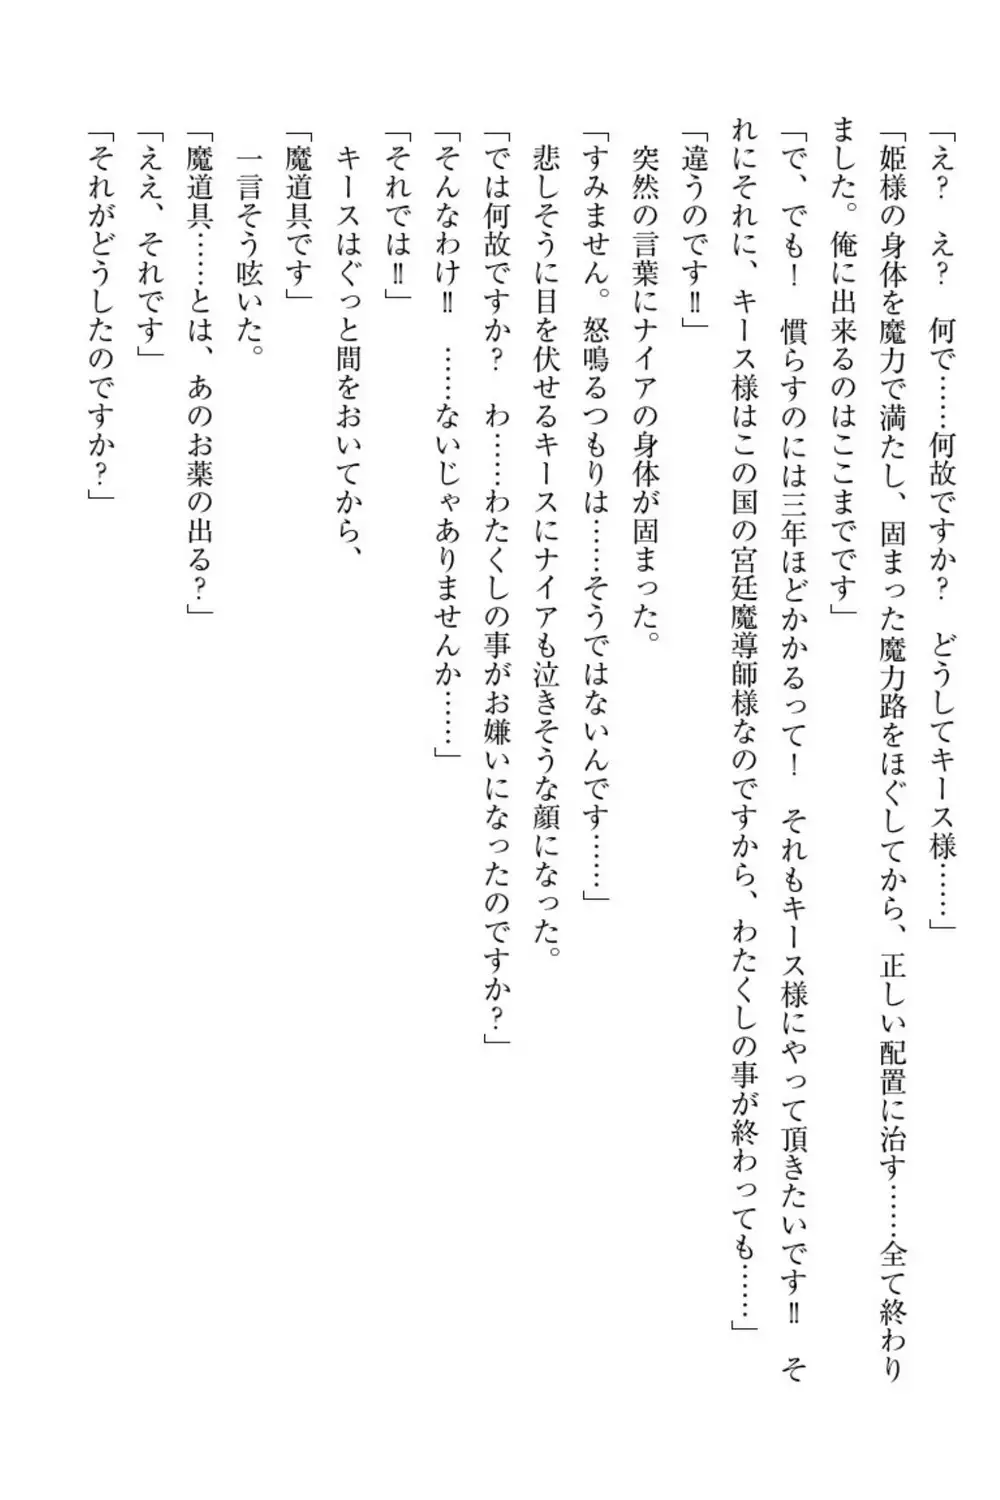 「え？　え？　何で……何故ですか？　どうしてキース様……」
「姫様の身体を魔力で満たし、固まった魔力路をほぐしてから、正しい配置に治す……全て終わり
ました。俺に出来るのはここまでです」
「で、でも！　慣らすのには三年ほどかかるって！　それもキース様にやって頂きたいです‼　そ
れにそれに、キース様はこの国の宮廷魔導師様なのですから、わたくしの事が終わっても……」
「違うのです‼」
　突然の言葉にナイアの身体が固まった。
「すみません。怒鳴るつもりは……そうではないんです……」
　悲しそうに目を伏せるキースにナイアも泣きそうな顔になった。
「では何故ですか？　わ……わたくしの事がお嫌いになったのですか？」
「そんなわけ‼　……ないじゃありませんか……」
「それでは‼」
　キースはぐっと間をおいてから、
「魔道具です」
　一言そう呟いた。
「魔道具……とは、あのお薬の出る？」
「ええ、それです」
「それがどうしたのですか？」